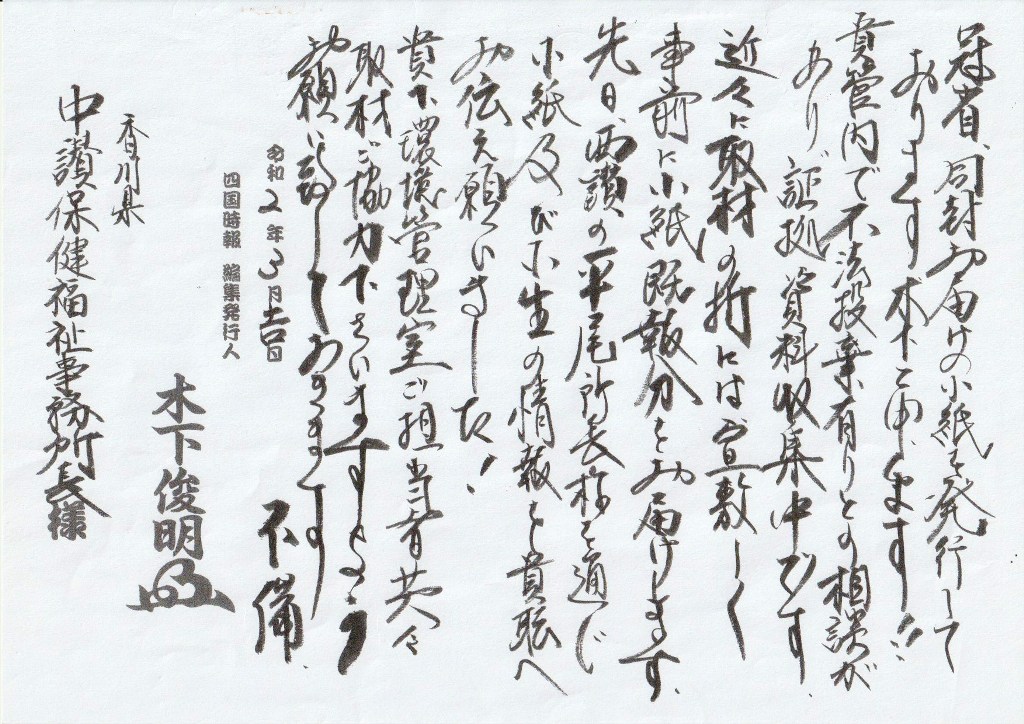 冠省、同封お届けの小紙を発行して
おります木下と申します！！
貴管内で不法投棄有りとの相談が
あり証拠資料収集中です
近々に取材の折には宜敷しく
事前に小紙既報分をお届けします。
先日、西讃の平尾所長様を通じ
小紙及び小生の情報を貴職へ
お伝え願いました！
貴下環境管理室ご担当者共々
取材ご協力下さいますよう
お願い致しておきます
不備
令和2年3月吉日
四国時報 編集発行人
木下俊明
香川県
中讃保健福祉事務所長様